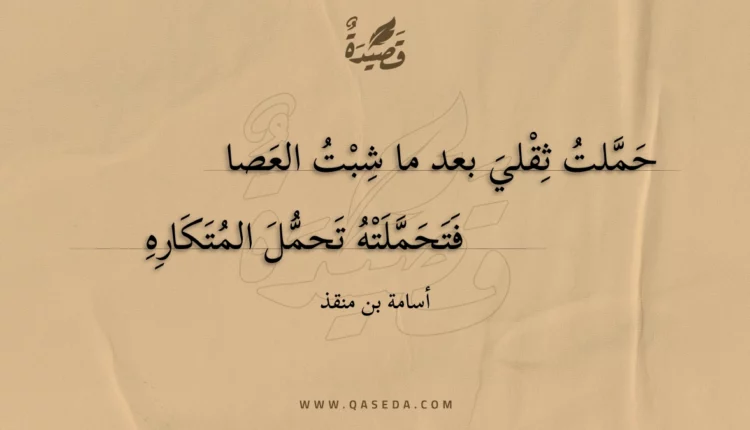 قَصِيْدَةٌ
حَمَّلتُ ثِقْليَ بعد ما شِبْتُ العَصا
فَتَحَمَّلَتْهُ تَحمُّلَ المُتَكَارِهِ
أسامة بن منقذ
WWW.QASEDA.COM